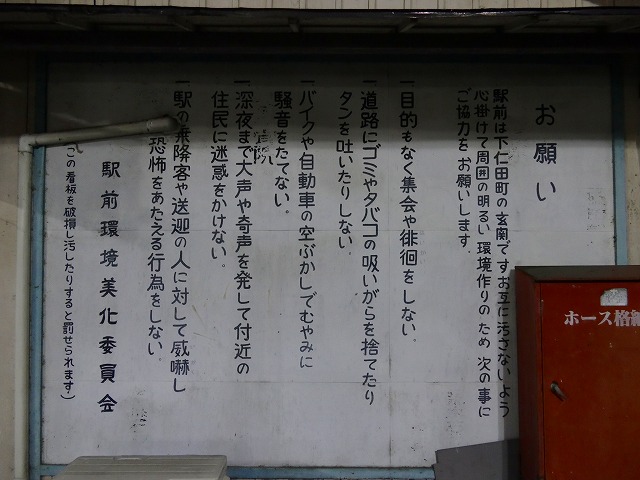 お願い
駅前は下仁田町の玄関ですお互に汚さないよう
心掛けて周囲の明るい環境作りのため次の事に
ご協力をお願いします.
一目的もなく集会や徘徊をしない。
一道路にゴミやタバコの吸いがらを捨てたり
タンを吐いたりしない.
一バイクや自動車の空ぶかしでむやみに
騒音をたてない。
一深夜まで大声や奇声を発して付近の
住民に迷惑をかけない。
一駅の乗降客や送迎の人に対して威嚇し
恐怖をあたえる行為をしない.
駅前環境美化委員会
(この看板を破損し汚したりすると罰せられます.)
ホース格納